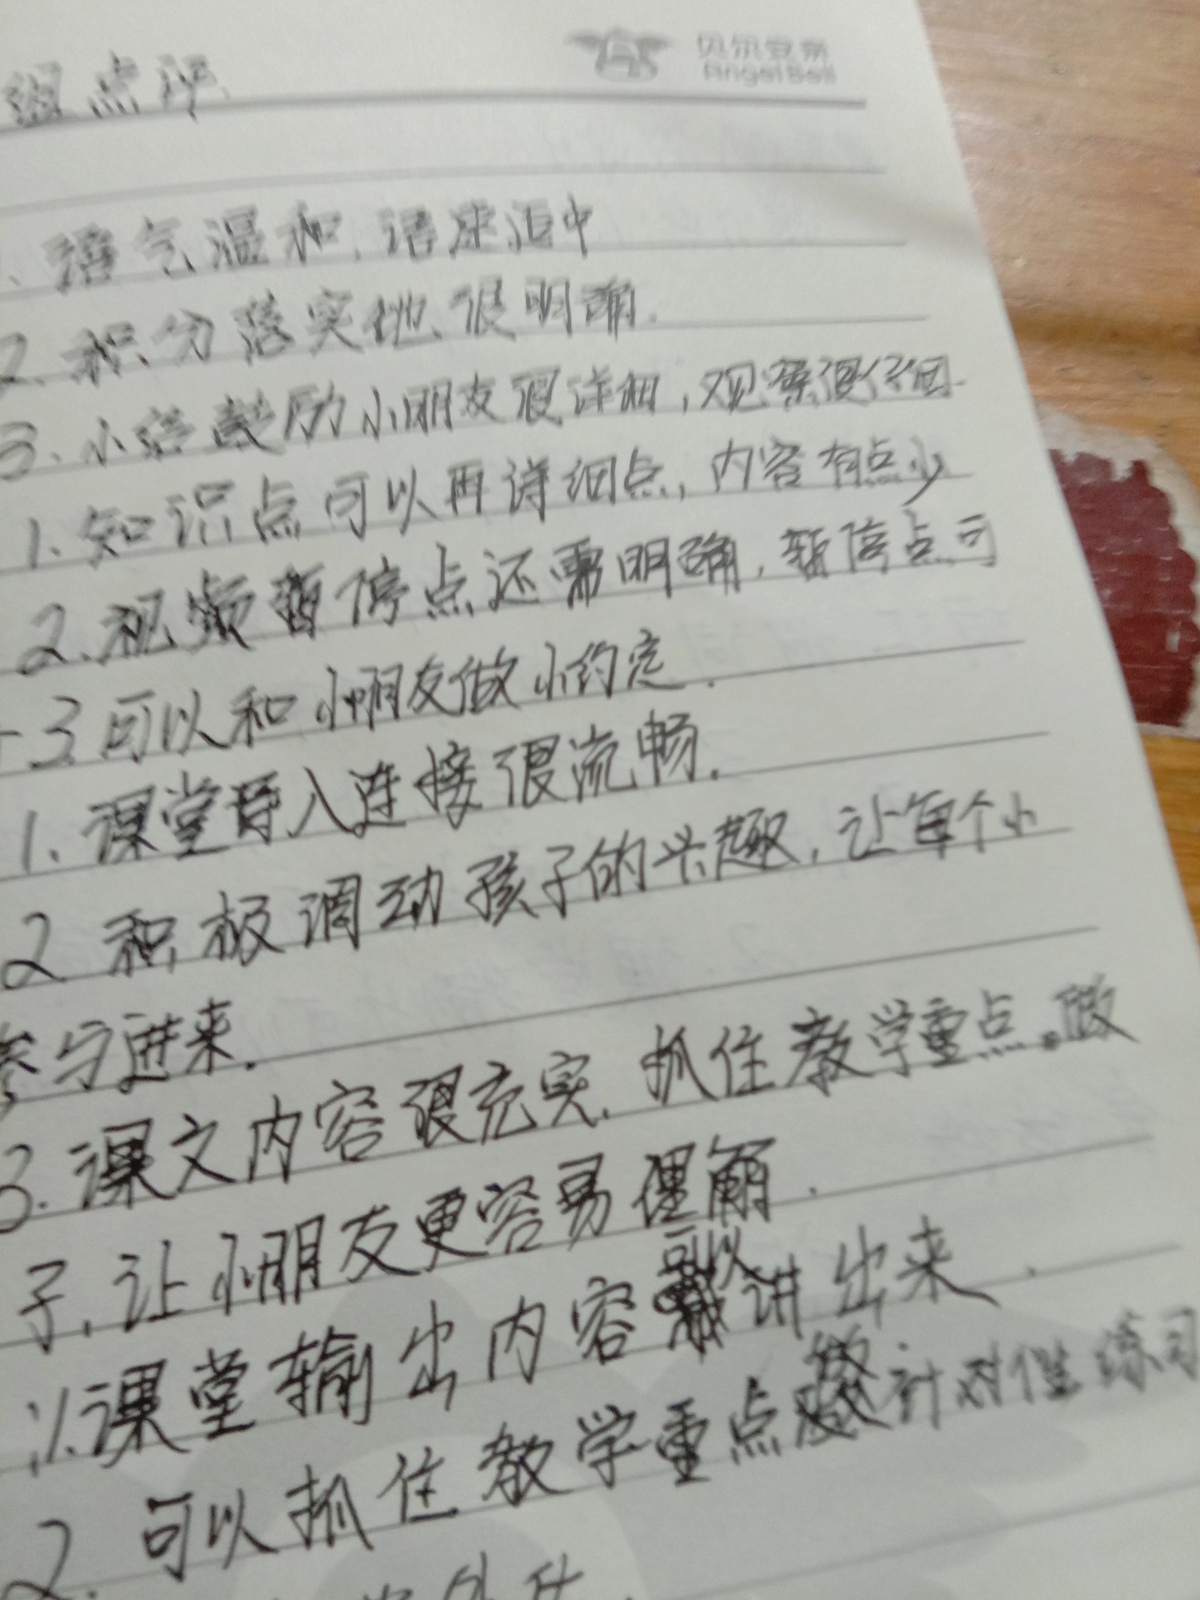 贝尔安亲
Angel Bell
组点评
1、语气温和、语速适中
2、积分落实地、很明确.
3、小结鼓励小朋友很详细，观察很仔细.
1、知识点可以再详细点，内容有点少
2、视频暂停点还需明确，暂停点可
3 可以和小朋友做小约定.
1、课堂导入连接很流畅.
2 积极调动孩子的兴趣，让每个小
参与进来.
3、课文内容很充实，抓住教学重点。做
子，让小朋友更容易理解.
1、课堂输出内容可以讲出来.
2、可以抓住教学重点做针对性练习